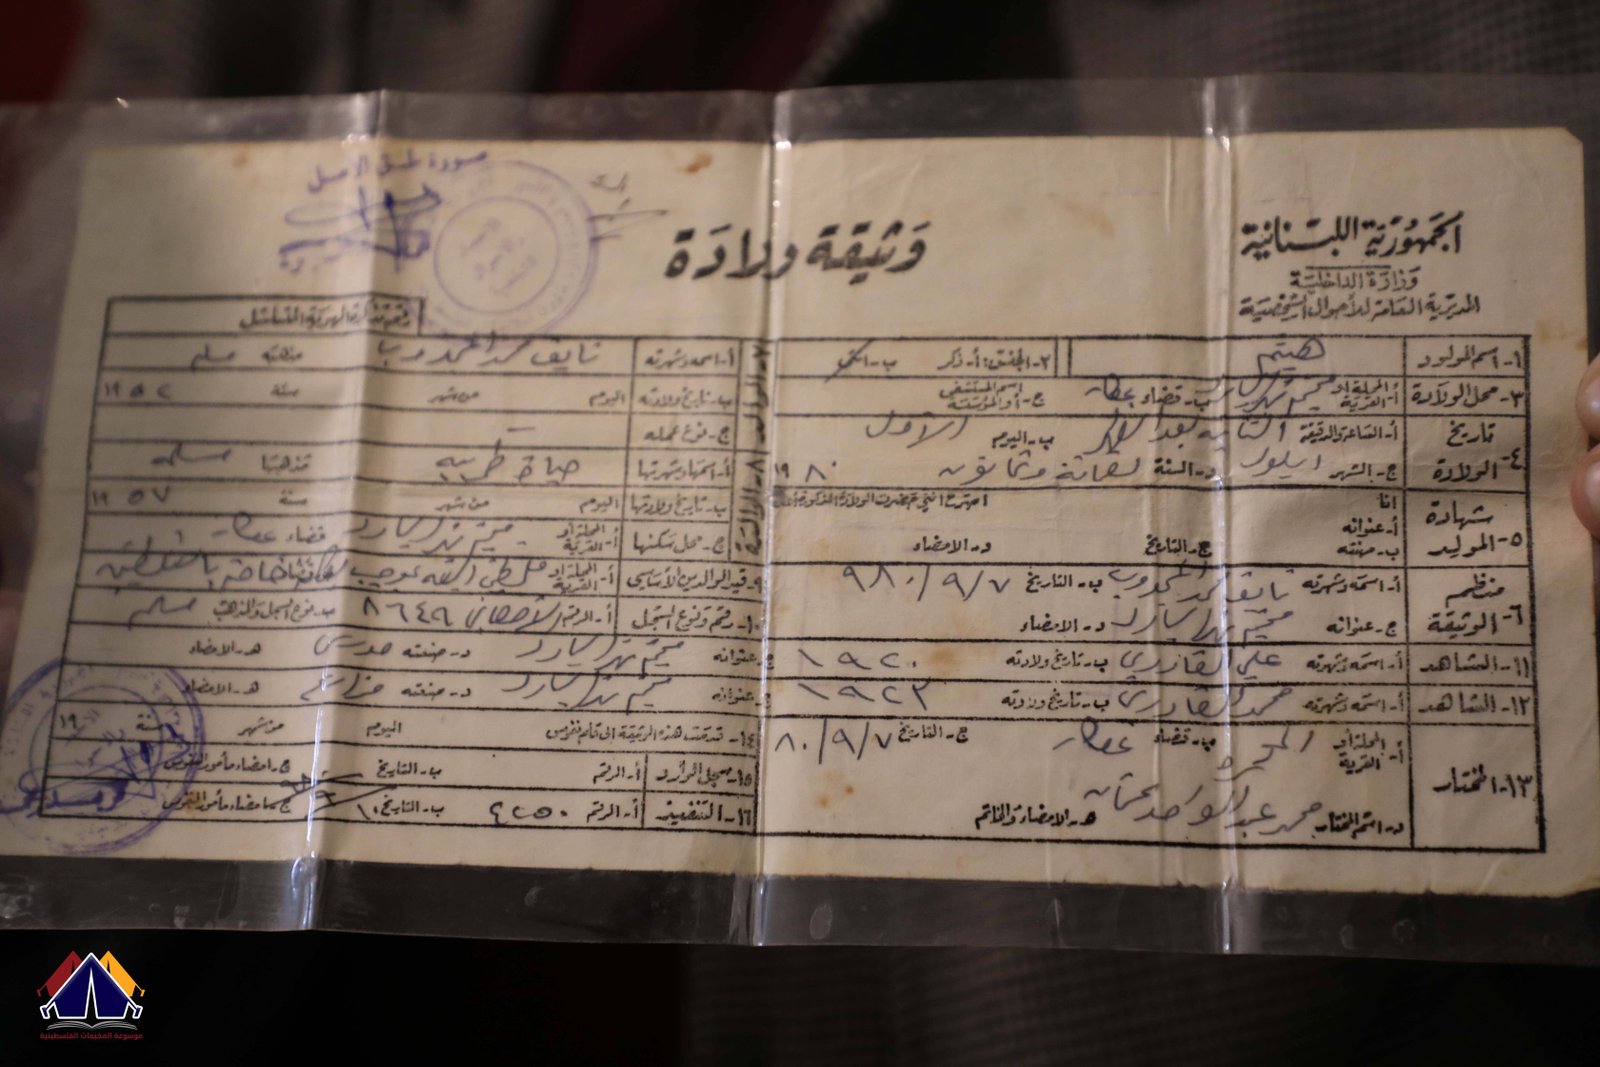 صورة طبق الاصل
الجمهورية اللبنانية
وزارة الداخلية
المديرية العامة للأحوال الشخصية
وثيقة ولادة
رقم تذكرة الهوية المتسلسل
١- اسم المولود هيثم
٢- الجنس: أ- ذكر ب- انثى
٣- محل الولادة أ- المحلة او القرية مخيم نهر البارد ب- قضاء عكار ج- اسم المستشفى أو المؤسسة
٤- تاريخ الولادة أ- الساعة والدقيقة الثانية بعد الظهر ب- اليوم الأول
ج- الشهر ايلول د- السنة تسعمائة وثمانون ١٩٨٠
٥- شهادة المولد انا اصرح انني حضرت الولادة المذكورة
أ- عنوانه
ب- مهنته ج- التاريخ د- الامضاء
٦- منظم الوثيقة أ- اسمه وشهرته نايف محمد المجذوب ب- التاريخ ٩٨٠/٩/٧
ج- عنوانه مخيم نهر البارد د- الامضاء
٧- الوالد أ- اسمه وشهرته نايف محمد المجذوب مذهبه مسلم
ب- تاريخ ولادته اليوم من شهر سنة ١٩٥٢
ج- نوع عمله
٨- الوالدة أ- اسمها وشهرتها مذهبها مسلمه
ب- تاريخ ولادتها اليوم من شهر سنة ١٩٥٧
ج- محل سكنها أ- المحلة أو القرية مخيم نهر البارد قضاء عكار
٩- قيد الوالدين الأساسي أ- المحلة او القرية خاصة بالفلسطينيين
١٠- رقم ونوع السجل أ- الرقم الاحصائي ٨٦٤٩ ب- نوع السجل والمذهب مسلم
١١- الشاهد أ- اسمه وشهرته علي القادري ب- تاريخ ولادته ١٩٢٠ ج- عنوانه مخيم نهر البارد د- صنعته مدرس هـ- الامضاء
١٢- الشاهد أ- اسمه وشهرته محمد القادري ب- تاريخ ولادته ١٩٢٣ ج- عنوانه مخيم نهر البارد د- صنعته مزارع هـ- الامضاء
١٣- المختار أ- المحلة أو القرية المحمرة ب- قضاء عكار ج- التاريخ ٨٠/٩/٧
د- اسم المختار محمد عبد الواحد عثمان هـ- الامضاء والخاتم
١٤- قدمت هذه الوثيقة الى قلم نفوس اليوم من شهر سنة ١٩
١٥- سجل الوارد أ- الرقم ب- التاريخ ج- امضاء مأمور النفوس
١٦- التنفيذ أ- الرقم ٤٢٥٠ ب- التاريخ ج- امضاء مأمور النفوس
موسوعة المخيمات الفلسطينية